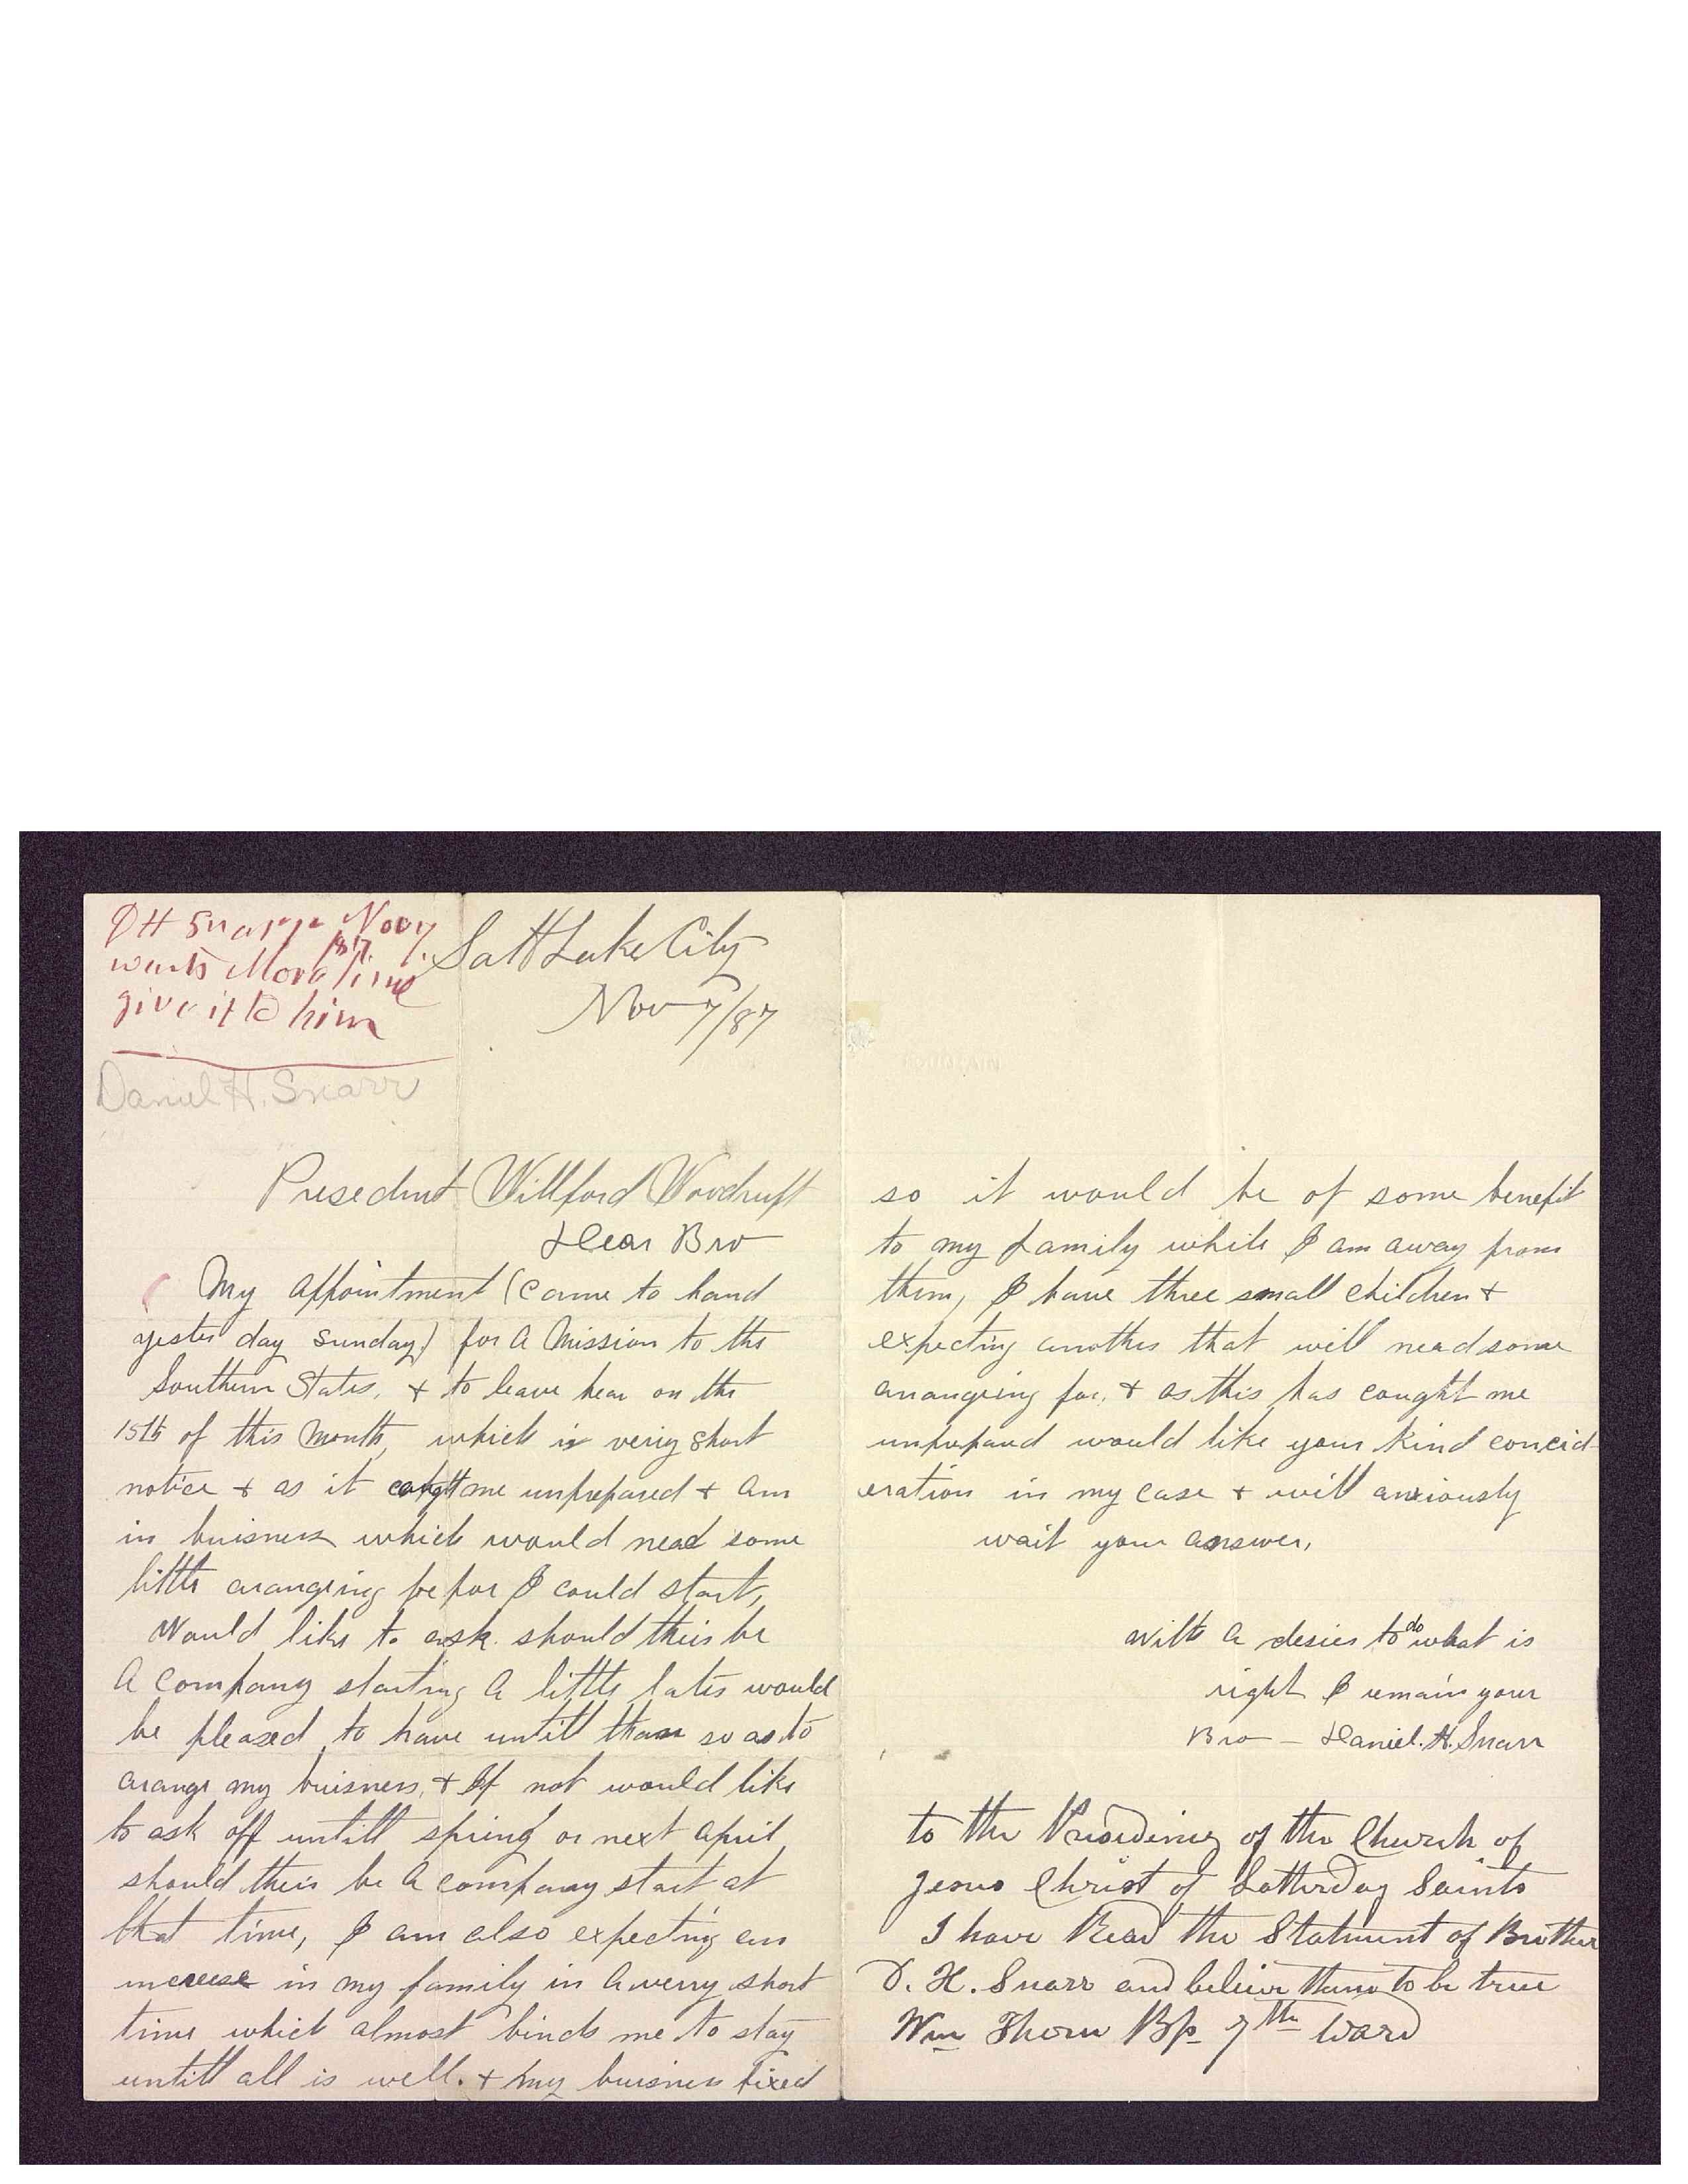 DH Snarr Nov 7
1887.
wants More Time
give it to him
Daniel H. Snarr
Salt Lake City
Nov 7/87
Presedent Willford Woodruff
Dear Bro
My appointment (came to hand
yester day sunday) for A Mission to the
Southern States, & to leave hear on the
15th of this Month, which is verry short
notice & as it caught me unprepared & am
in buisness which would nead some
little arangeing befor I could start,
Would like to ask. should their be
A company starting A little later would
be pleased to have untill than so as to
arange my buisness, & If not would like
to ask off untill spring or next april
should their be A company start at
that time, I am also expecting an
increase in my family in A verry short
time which almost binds me to stay
untill all is well. & my buisness fixed
so it would be of some benefit
to my family while I am away from
them, I have three small children &
expecting another that will nead some
arangeing for, & as this has caught me
unprepared would like your kind concid-
eration in my case & will anxiously
wait your answer,
with a desier to do what is
right I remain your
Bro — Daniel. H. Snarr
to the of the Church of
Jesus Christ of Latterday Saints
I have Read the Statment of Brother
D. H. Snarr and believe them to be true
Wm Thorn Bp 7th Ward